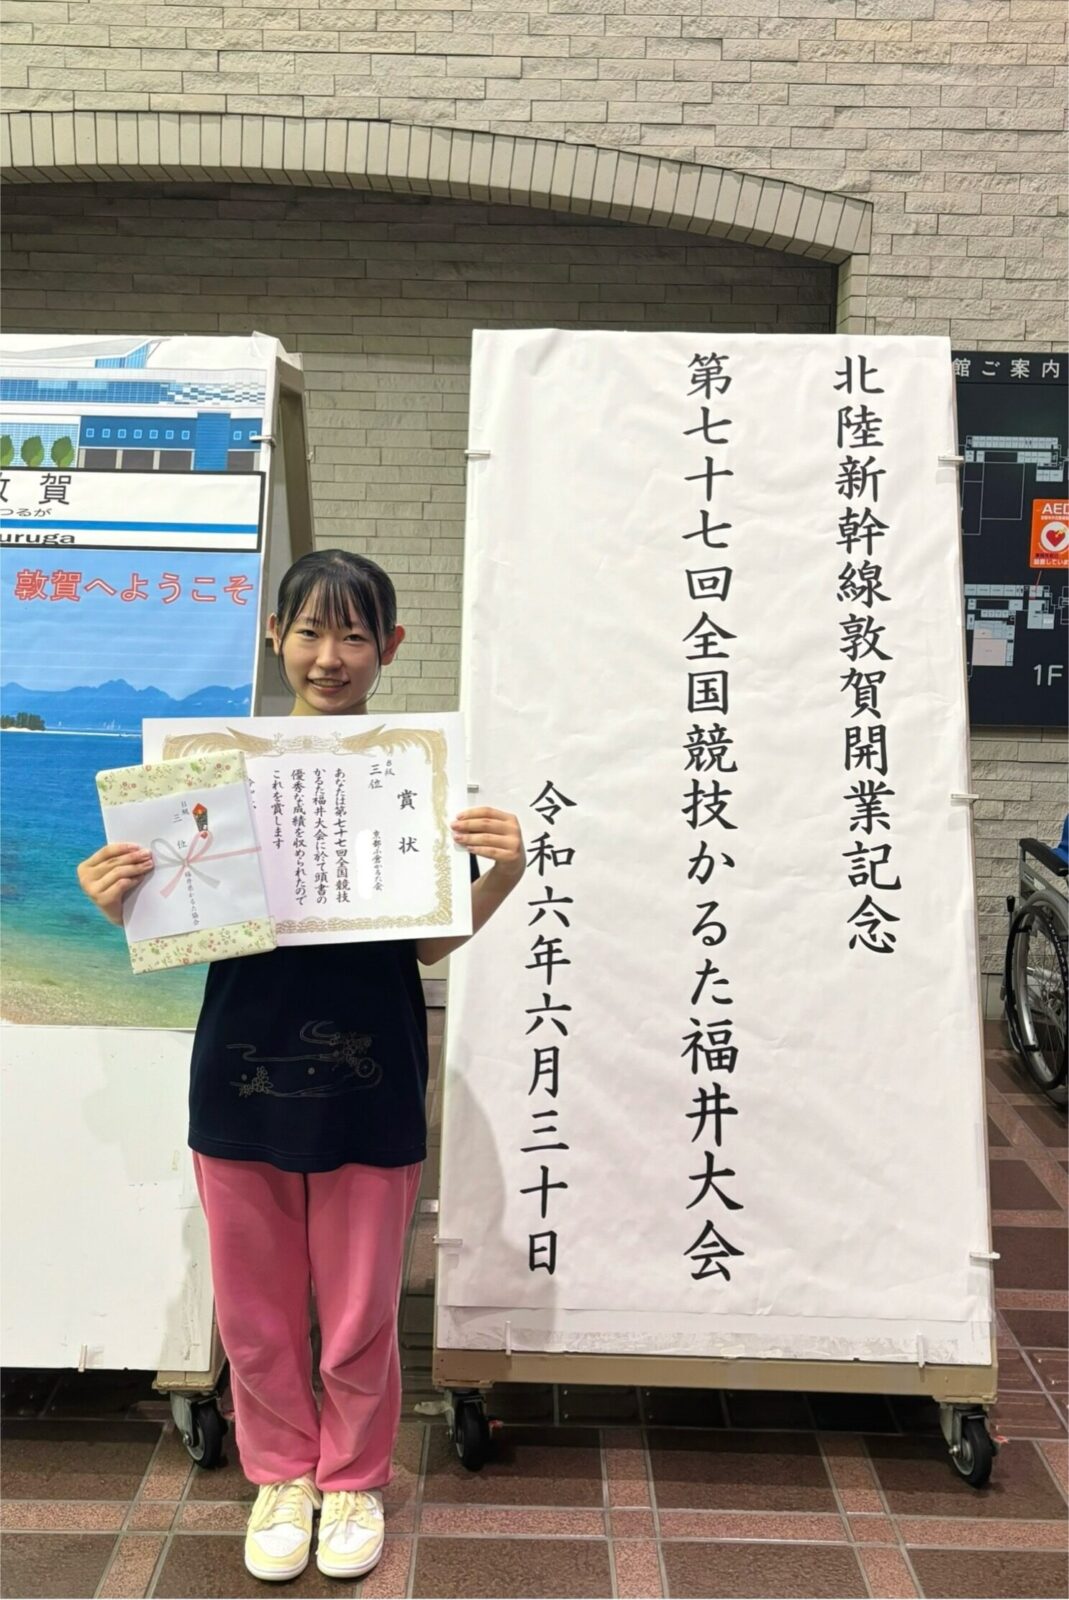 北陸新幹線敦賀開業記念
第七十七回全国競技かるた福井大会
令和六年六月三十日
館ご案内
AED
1F
敦賀
つるが
uruga
敦賀へようこそ
賞状
B級
三位
京都小倉かるた会
あなたは第七十七回全国競技
かるた福井大会に於て頭書の
優秀な成績を収められたので
これを賞します
B級
三位
福井県かるた協会